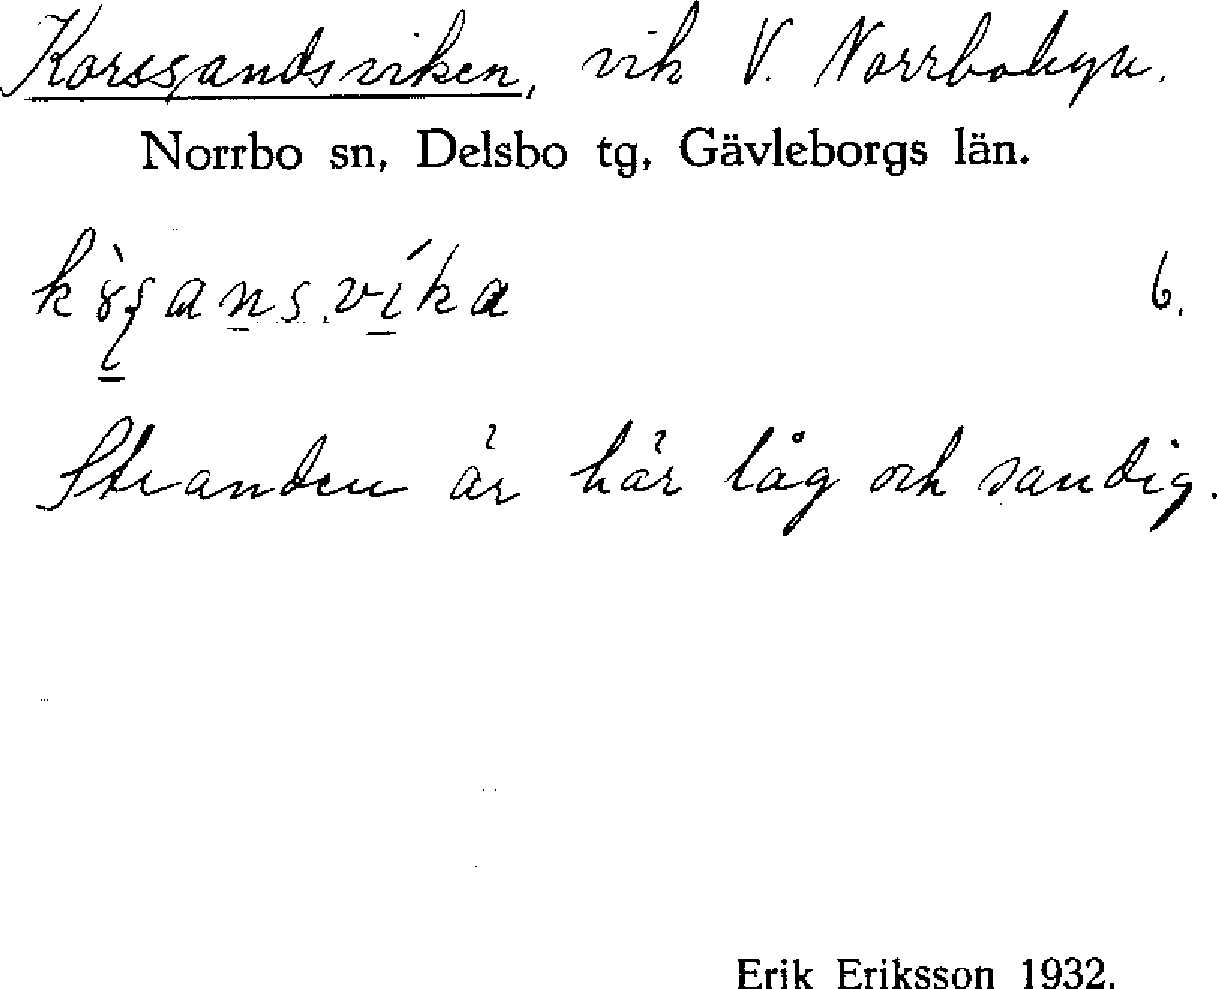 Korssandsviken, vik V. Norrbobyn.
Norrbo sn, Delsbo tg, Gävleborgs län.
6.
Stranden är här låg och sandig.
Erik Eriksson 1932.